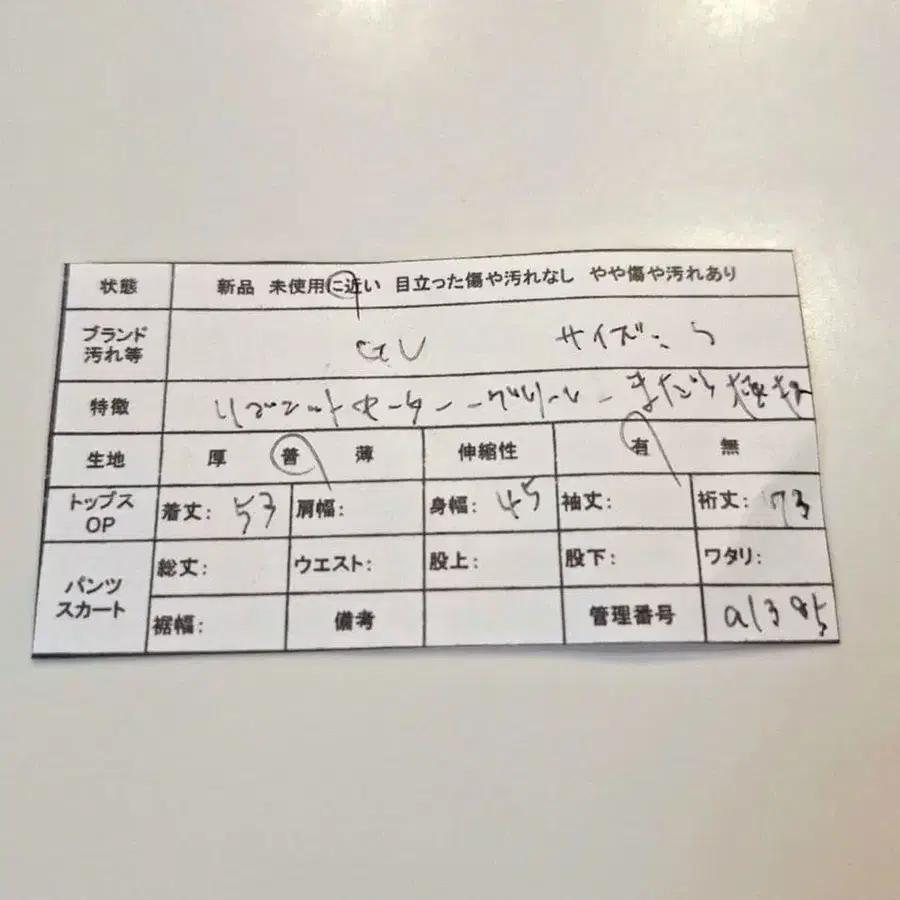 状態 新品 未使用に近い 目立った傷や汚れなし やや傷や汚れあり
ブランド 汚れ等 GU サイズ: S
特徴
生地 厚 普 薄 伸縮性 有 無
トップス OP 着丈: 53 肩幅: 身幅: 45 袖丈: 裄丈: 73
パンツ スカート 総丈: ウエスト: 股上: 股下: ワタリ:
裾幅: 備考 管理番号 a1385